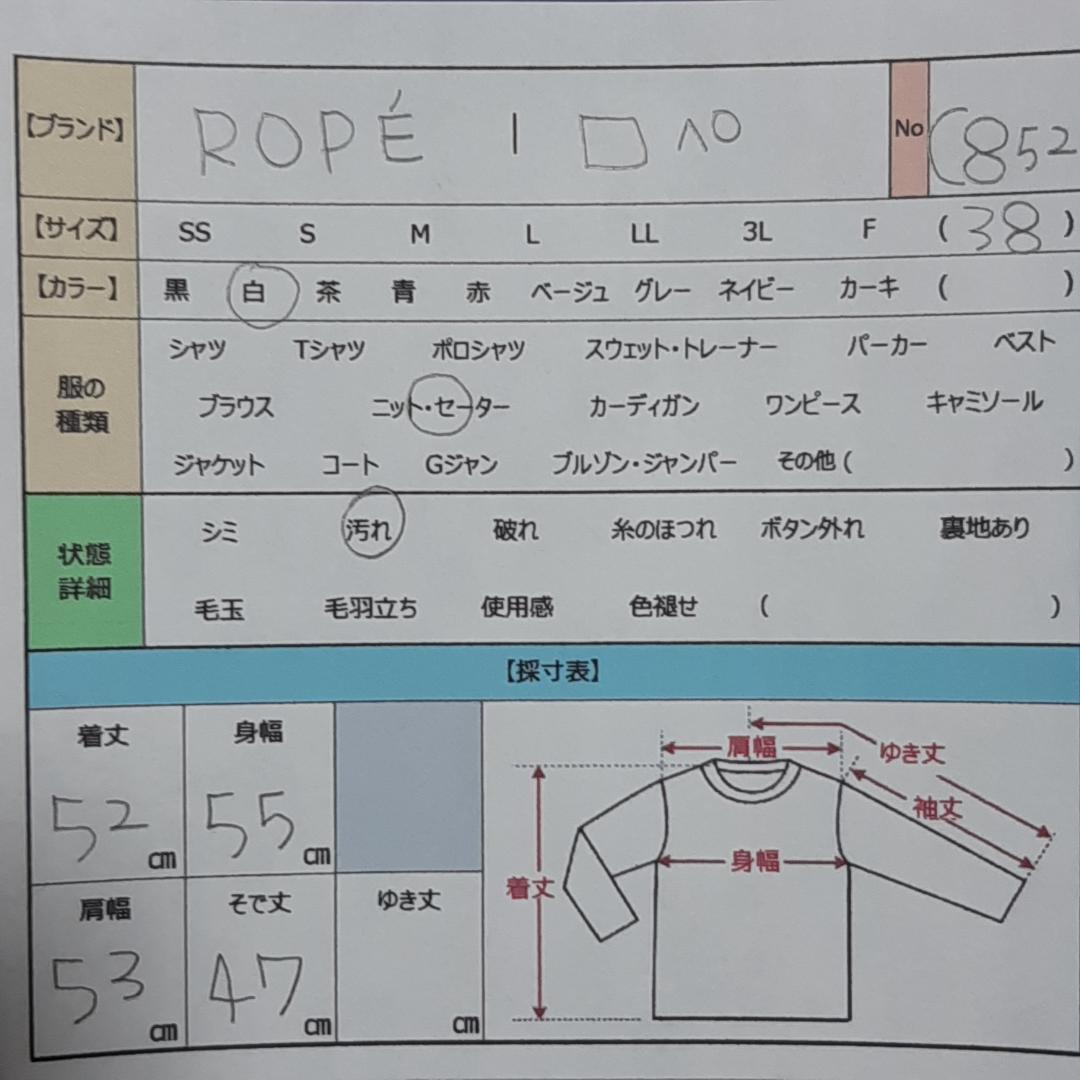 【ブランド】 ROPÉ | ロペ No (852
【サイズ】 SS S M L LL 3L F ( 38 )
【カラー】 黒 白 茶 青 赤 ベージュ グレー ネイビー カーキ ( )
服の種類
シャツ Tシャツ ポロシャツ スウェット・トレーナー パーカー ベスト
ブラウス ニット・セーター カーディガン ワンピース キャミソール
ジャケット コート Gジャン ブルゾン・ジャンパー その他 ( )
状態詳細
シミ 汚れ 破れ 糸のほつれ ボタン外れ 裏地あり
毛玉 毛羽立ち 使用感 色褪せ ( )
【採寸表】
着丈 身幅
52 cm 55 cm
肩幅 そで丈 ゆき丈
53 cm 47 cm cm
肩幅 ゆき丈
袖丈
身幅
着丈